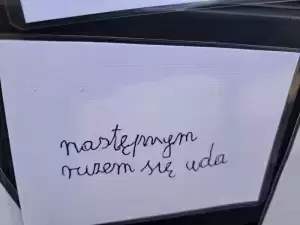 następnym
razem się uda